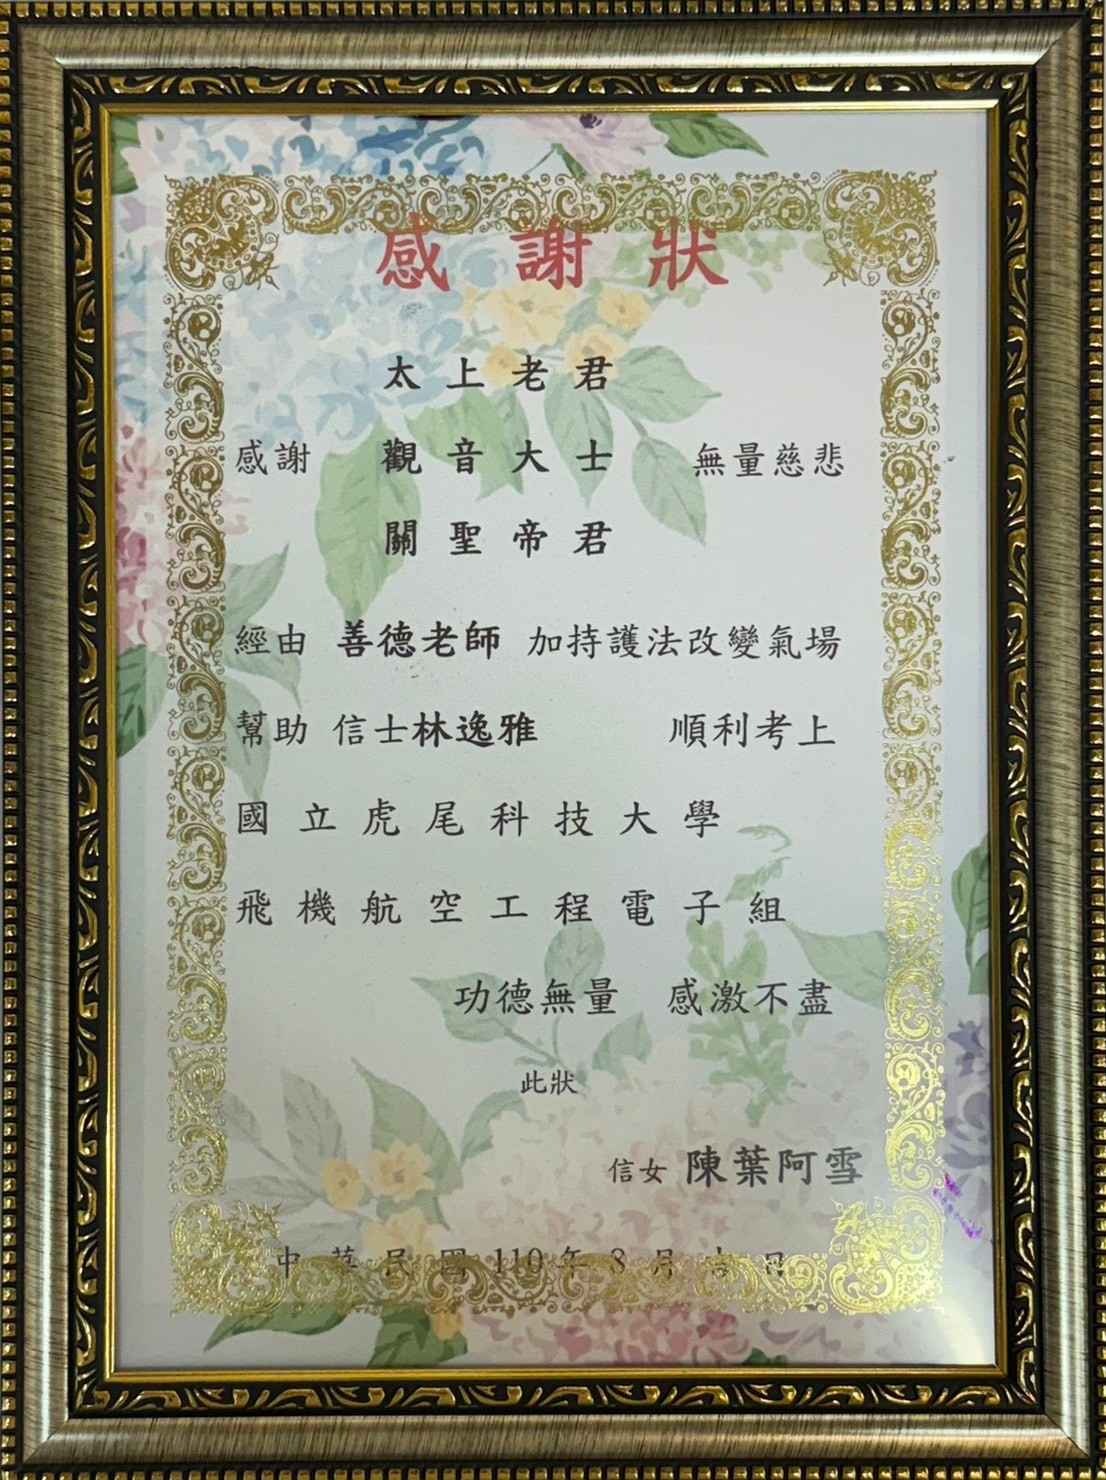 感謝狀
太上老君
感謝 觀音大士 無量慈悲
關聖帝君
經由 善德老師 加持護法改變氣場
幫助 信士林逸雅 順利考上
國立虎尾科技大學
飛機航空工程電子組
功德無量 感激不盡
此狀
信女 陳葉阿雪
中華民國110年8月吉日